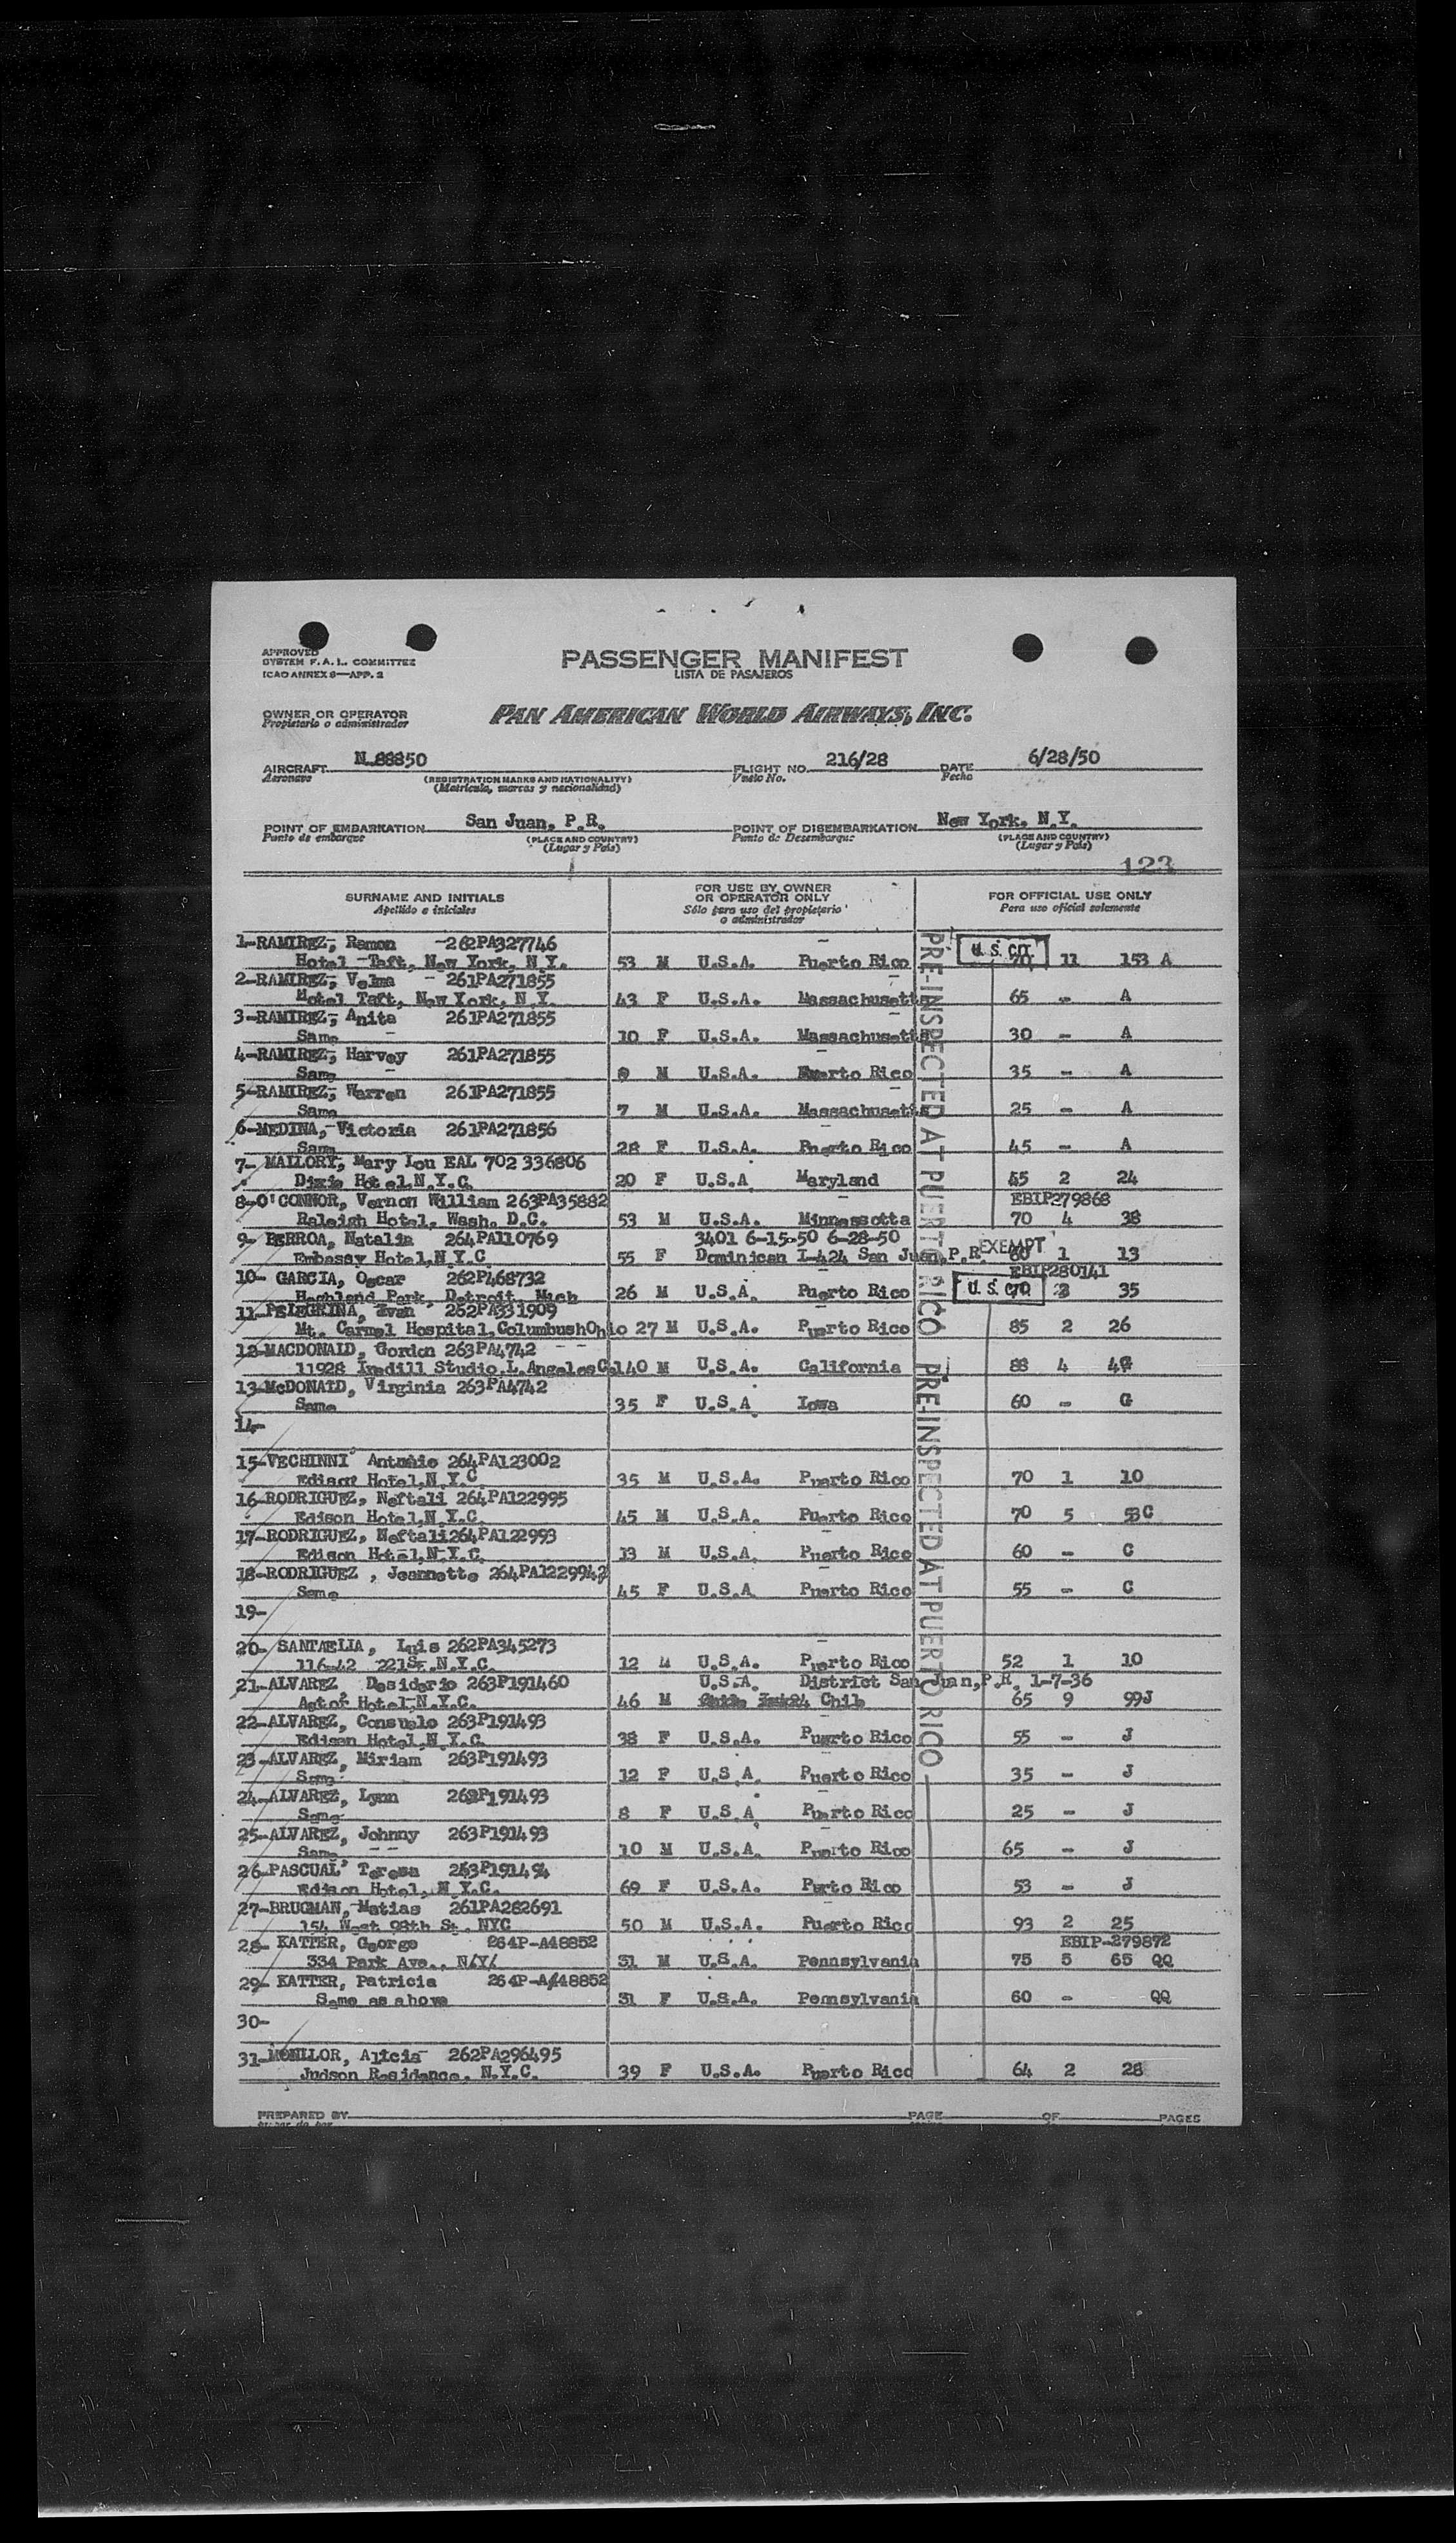 APPROVED
SYSTEM F.A.L. COMMITTEE
ICAO ANNEX 9—APP. 2
PASSENGER MANIFEST
LISTA DE PASAJEROS
OWNER OR OPERATOR
Propietario o administrador
PAN AMERICAN WORLD AIRWAYS, INC.
AIRCRAFT N 88850 FLIGHT NO. 216/28 DATE 6/28/50
Aeronave (REGISTRATION MARKS AND NATIONALITY) Vuelo No. Fecha
(Matricula, marcas y nacionalidad)
POINT OF EMBARKATION San Juan, P.R. POINT OF DISEMBARKATION New York, N.Y.
Punto de embarque (PLACE AND COUNTRY) Punto de Desembarque (PLACE AND COUNTRY)
(Lugar y Pais) (Lugar y Pais)
123
SURNAME AND INITIALS FOR USE BY OWNER OR OPERATOR ONLY FOR OFFICIAL USE ONLY
Apellido e iniciales Sólo para uso del propietario o administrador Para uso oficial solamente
PRE-INSPECTED AT PUERTO RICO
PRE-INSPECTED AT PUERTO RICO
1-RAMIREZ, Ramon -262PA327746 U.S. CIT
Hotel Taft, New York, N.Y. 53 M U.S.A. Puerto Rico 70 11 153 A
2-RAMIREZ, Velma - 261PA271855
Hotel Taft, New York, N.Y. 43 F U.S.A. Massachusetts 65 - A
3-RAMIREZ, Anita 261PA271855
Same 10 F U.S.A. Massachusetts 30 - A
4-RAMIREZ, Harvey 261PA271855
Same M U.S.A. Puerto Rico 35 - A
5-RAMIREZ, Warren 261PA271855
Same 7 M U.S.A. Massachusetts 25 - A
6-MEDINA, Victoria 261PA271856
Same 28 F U.S.A. Puerto Rico 45 - A
7- MALLORY, Mary Lou EAL 702 336806
Dixie Hotel,N.Y.C. 20 F U.S.A Maryland 45 2 24
8-O'CONNOR, Vernon William 263PA35882 EBIP279868
Raleigh Hotel, Wash. D.C. 53 M U.S.A. Minnessotta 70 4 38
9- BERROA, Natalia 264PA110769 3401 6-15-50 6-28-50
Embassy Hotel,N.Y.C 55 F Dominican I-424 San Juan,P.R. EXEMPT 60 1 13
10- GARCIA, Oscar 262P468732 EBIP280141
Highland Park, Detroit, Mich 26 M U.S.A. Puerto Rico U.S. CIT 35
11-PELEGRINA, Ivan 262PA331909
Mt. Carmel Hospital,ColumbusOhio 27 M U.S.A. Puerto Rico 85 2 26
12-MACDONALD, Gordon 263PA4742
11928 Studio,L.Angeles 40 M U.S.A. California 88 4 4G
13-McDONALD, Virginia 263PA4742
Same 35 F U.S.A Iowa 60 - G
14-
15-VECHINNI Antonio 264PA123002
Edison Hotel,N.Y.C 35 M U.S.A. Puerto Rico 70 1 10
16-RODRIGUEZ, Neftali 264PA122995
Edison Hotel,N.Y.C. 45 M U.S.A. Puerto Rico 70 5 53C
17-RODRIGUEZ, Neftali264PA122993
Edison Hotel,N.Y.C. 13 M U.S.A. Puerto Rico 60 - C
18-RODRIGUEZ , Jeannette 264PA122994
Same 45 F U.S.A Puerto Rico 55 - C
19-
20- SANTAELIA, Luis 262PA345273
116-42 221St.N.Y.C. 12 U.S.A. Puerto Rico 52 1 10
21-ALVAREZ Desiderio 263P191460 U.S.A. District San Juan,P.R. 1-7-36
Astor Hotel,N.Y.C. 46 M Chile 65 9 99J
22-ALVAREZ, Consuelo 263P191493
Edison Hotel,N.Y.C. 38 F U.S.A. Puerto Rico 55 - J
23-ALVAREZ, Miriam 263P191493
Same 12 F U.S.A. Puerto Rico 35 - J
24-ALVAREZ, Lynn 263P191493
Same 8 F U.S.A Puerto Rico 25 - J
25-ALVAREZ, Johnny 263P191493
Same 10 M U.S.A. Puerto Rico 65 - J
26-PASCUAL Teresa 263P191494
Edison Hotel, N.Y.C. 69 F U.S.A. Perto Rico 53 - J
27-BRUGMAN, Matias 261PA282691
154 West 98th St. NYC 50 M U.S.A. Puerto Rico 93 2 25
28- KATTER, George 264P-A48852 EBIP-279872
334 Park Ave., N/Y/ 31 M U.S.A. Pennsylvania 75 5 65 QQ
29- KATTER, Patricia 264P-A48852
Same as above 31 F U.S.A. Pennsylvania 60 - QQ
30-
31-MONLLOR, Alicia 262PA296495
Judson Residence, N.Y.C. 39 F U.S.A. Puerto Rico 64 2 28
PREPARED BY PAGE OF PAGES